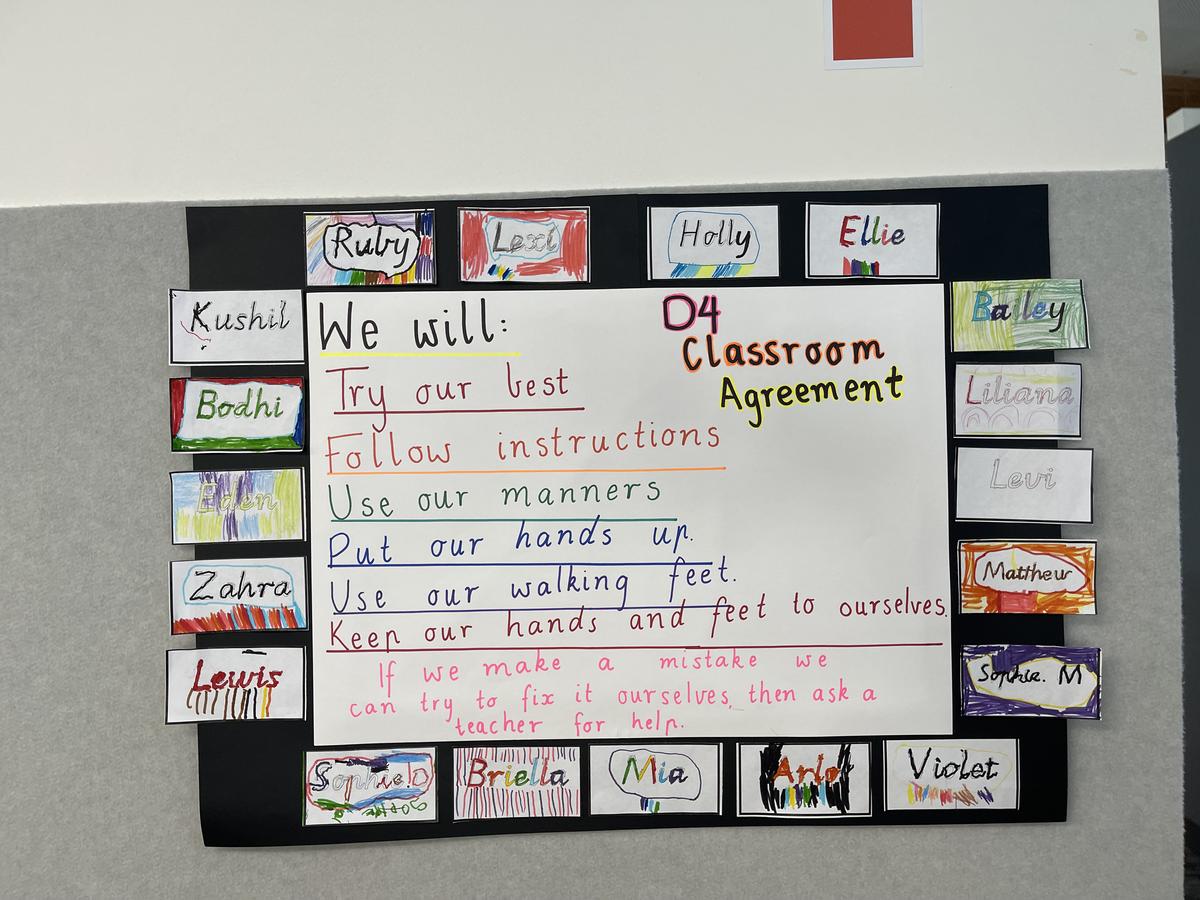 Ruby
Lexi
Holly
Ellie
Kushil
Bodhi
Eden
Zahra
Lewis
We will:
D4
Classroom
Agreement
Try our best
Follow instructions
Use our manners
Put our hands up.
Use our walking feet.
Keep our hands and feet to ourselves.
If we make a mistake we
can try to fix it ourselves, then ask a
teacher for help.
Bailey
Liliana
Levi
Matthew
Sophie. M
Sophie D
Briella
Mia
Arlo
Violet